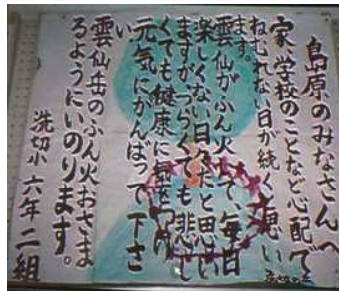 島原のみなさんへ
家、学校のことなど心配で
ねむれない日が続くと思い
ます。
雲仙がふん火して、毎日
楽しくない日々だと思い
ますが、つらくても悲し
くても健康に気をつけ
元気にがんばって下さ
い
雲仙岳のふん火おさま
るようにいのります。
洗切小 六年二組